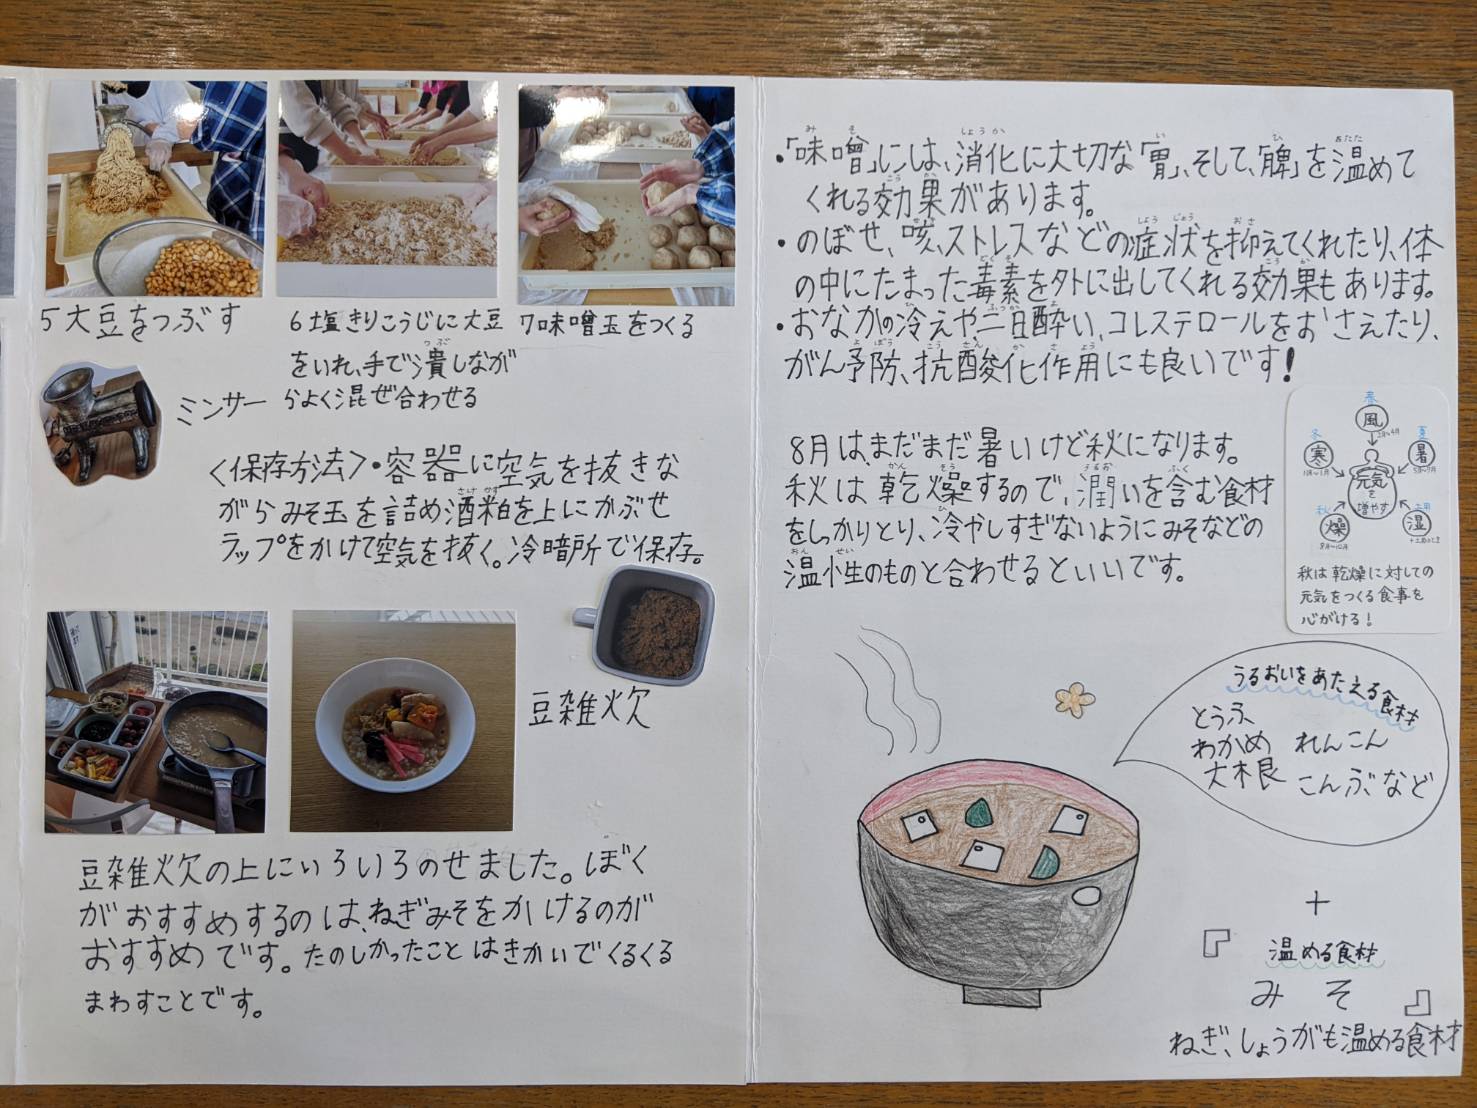 5大豆をつぶす
6塩きりこうじに大豆
をいれ、手で潰しなが
らよく混ぜ合わせる
つぶ
7味噌玉をつくる
ミンサー
〈保存方法〉・容器に空気を抜きな
がらみそ玉を詰め酒粕を上にかぶせ
さけかす
ラップをかけて空気を抜く。冷暗所で保存。
豆雑炊
豆雑炊の上にいろいろのせました。ぼく
がおすすめするのは、ねぎみそをかけるのが
おすすめです。たのしかったことはきかいでくるくる
まわすことです。
み そ しょうか い ひ あたた
・「味噌」には、消化に大切な「胃」、そして、「脾」を温めて
こう か
くれる効果があります。
せき しょうじょう おさ
・のぼせ、咳、ストレスなどの症状を抑えてくれたり、体
どくそ こう か
の中にたまった毒素を外に出してくれる効果もあります。
ひ ふつか よ
・おなかの冷えや、二日酔い、コレステロールをおさえたり、
よぼう こうさん か さ よう
がん予防、抗酸化作用にも良いです!
8月は、まだまだ暑いけど秋になります。
かん そう うるお ふく
秋は乾燥するので、潤いを含む食材
ひ
をしっかりとり、冷やしすぎないようにみそなどの
おん せい
温性のものと合わせるといいです。
春
風
2月〜4月
冬
寒
夏
暑
元気
を
増やす
秋
燥
土用
湿
秋は乾燥に対しての
元気をつくる食事を
心がける!
うるおいをあたえる食材
とうふ
わかめ れんこん
大根 こんぶなど
+
『温める食材
みそ』
ねぎ、しょうがも温める食材